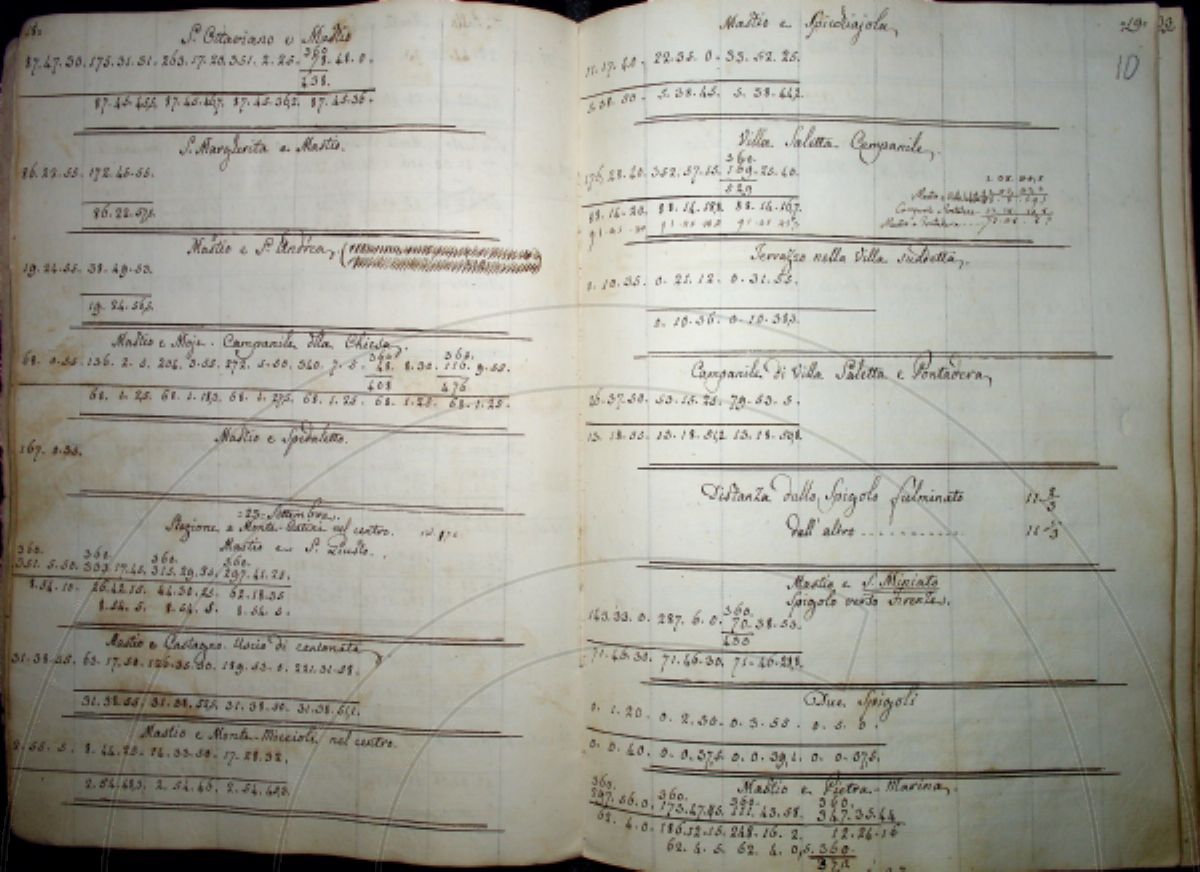 18.
S. Ottaviano e Mastio
360
87.47.30. 175.31.31. 263.17.20. 351. 2. 25. 78. 48. 0.
438.
87.45.455. 87.45.467. 87.45.362. 87.45.36.
S. Margherita e Mastio.
86.22.55. 172.45.55.
86.22.575.
Mastio e S. Andrea
19.24.55. 38.49.53.
19.24.565.
Mastio e Moje. Campanile dlla Chiesa
360. 360.
68. 0.55. 136. 2. 5. 204. 3.55. 272. 5.50. 340. 7. 5. 48. 8.30. 116. 9.55.
408 476
68. 1. 25. 68. 1. 183. 68. 1. 275. 68. 1. 25. 68. 1. 25. 68. 1. 25.
Mastio e Spedaletto.
167. 0.35.
25. Settembre.
Stazione a Monte nel centro.
Mastio e S. Giusto.
360. 360. 360. 360.
351. 5.50. 333.17.45. 315.29.35. 297.41.25.
8.54.10. 26.42.15. 44.30.25. 62.18.35
8.54. 5. 8.54. 5. 8.54. 5.
Mastio e Castagno Uscio di cantonata
31.38.55. 63.17.50. 126.35.30. 189.53. 0. 221.31.58.
31.38.55. 31.38.525. 31.38.50. 31.38.511.
Mastio e Monte Miccioli nel centro.
2.55. 5. 8.44.25. 14.33.50. 17.28.32.
2.54.483. 2.54.46. 2.54.453.
Mastio e Spicchiajola
19. 33
10
11.17.40. 22.35. 0. 33.52.25.
5.38.50. 5.38.45. 5.38.442.
Villa Saletta Campanile
360.
176.28.40. 352.57.15. 169.25.40.
529
88.14.20. 88.14.188. 88.14.167.
Terrazzo nella Villa suddetta
0.10.35. 0.21.12. 0.31.55.
0.10.36. 0.10.383.
Campanile di Villa Saletta e Pontadera
26.37.50. 53.15.25. 79.53. 5.
13.18.55. 13.18.512 13.18.508.
Distanza dallo Spigolo fulminato 11
dall'altro 11
Mastio e S. Miniato
Spigolo verso Firenze.
360.
143.33. 0. 287. 6. 0. 70.38.53.
430
71.46.30. 71.46.30. 71.46.288.
Due Spigoli
0. 1.20. 0. 2.30. 0. 3.55. 0. 5. 0.
0. 0.40. 0. 0.375. 0. 0.391. 0. 0.375.
Mastio e Pietra Marina
360. 360. 360. 360.
297.56.0. 173.47.45. 111.43.58. 347.35.44
62. 4.0. 186.12.15. 248.16. 2. 12.24.16
62. 4. 5. 62. 4. 0,5. 360.
372